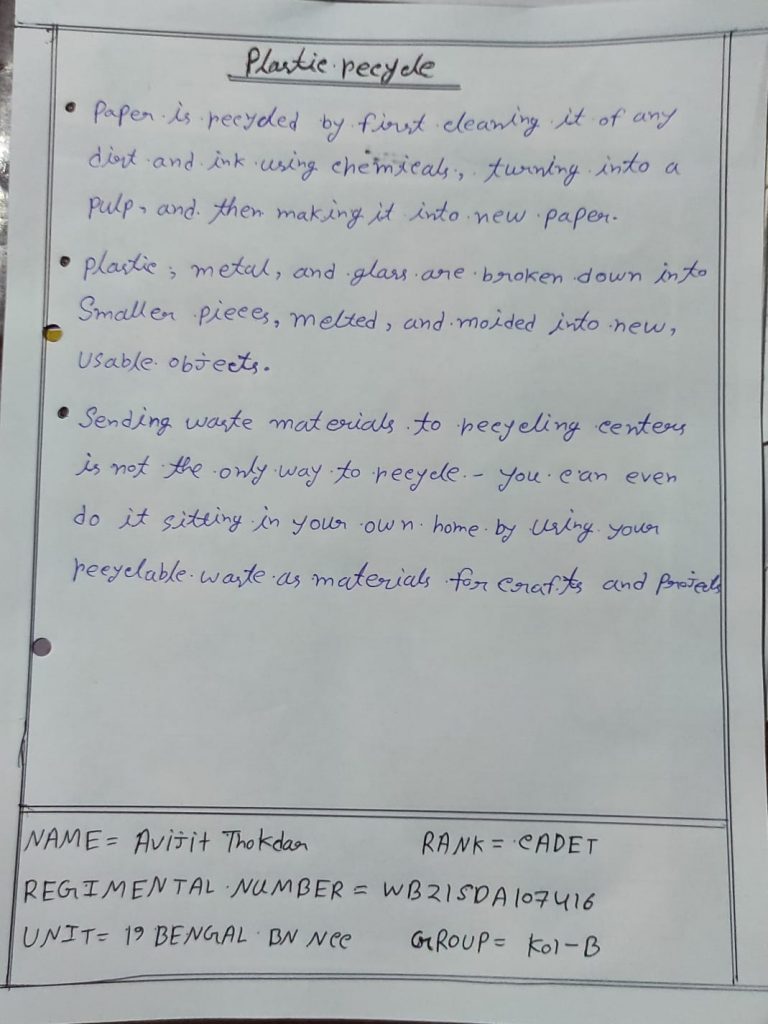 Plastic recycle
• Paper is recycled by first cleaning it of any
dirt and ink using chemicals, turning into a
pulp, and then making it into new paper.
• Plastic, metal, and glass are broken down into
Smaller pieces, melted, and molded into new,
Usable objects.
• Sending waste materials to recycling centers
is not the only way to recycle - you can even
do it sitting in your own home by using your
recyclable waste as materials for crafts and projects
NAME = Avijit Thokdar RANK = CADET
REGIMENTAL NUMBER = WB21SDA107416
UNIT = 19 BENGAL BN NCC GROUP = Kol-B